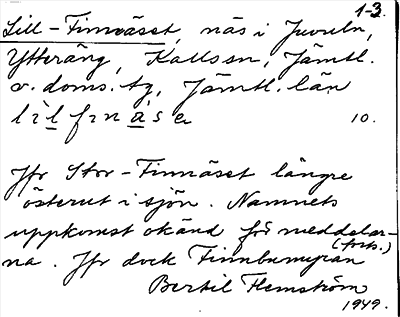 1-3.
Lill-Finnäset, näs i Juveln,
Ytteräng, Kallsn, Jämtl.
v. doms. tg, Jämtl. län
10.
Jfr Stor-Finnäset längre
österut i sjön. Namnets
uppkomst okänd för meddelar-
(forts.)
na. Jfr dock Finnbumyran
Bertil Flemström
1949.